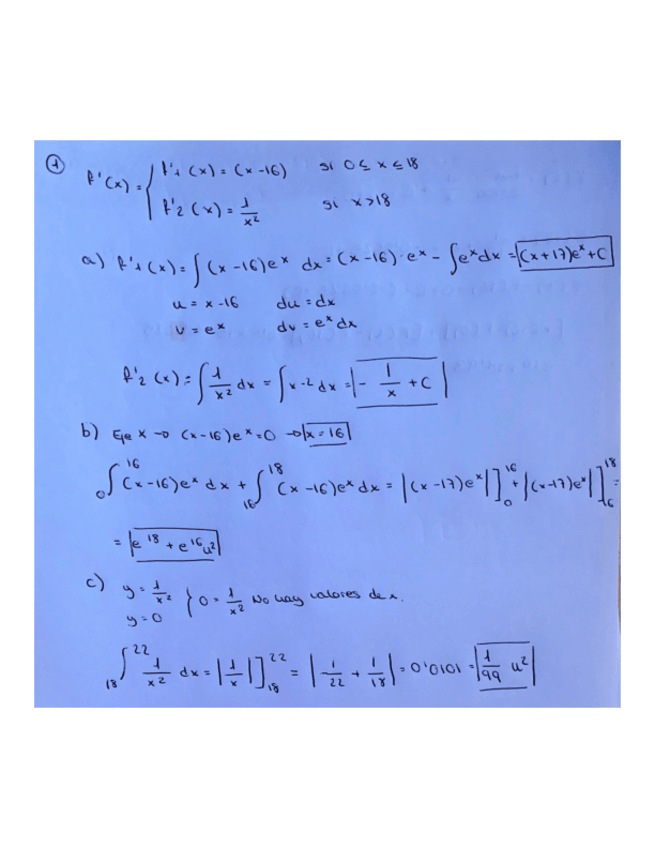 ① f'(x) = { f'1 (x) = (x-16) si 0 ≤ x ≤ 18
f'2 (x) = 1/x² si x>18
a) f'1 (x) = ∫ (x-16)e^x dx = (x-16)·e^x - ∫e^x dx = (x+17)e^x + C
u = x-16 du = dx
v = e^x dv = e^x dx
f'2 (x) = ∫ 1/x² dx = ∫ x^-2 dx = - 1/x + C
b) Eje x → (x-16)e^x = 0 → x = 16
₀∫¹⁶ (x-16)e^x dx + ₁₆∫¹⁸ (x-16)e^x dx = |(x-17)e^x|]₀¹⁶ + |(x-17)e^x|]₁₆¹⁸ =
= |e^18 + e^16 u²|
c) y = 1/x² } 0 = 1/x² No hay valores de x.
y = 0
₁₈∫²² 1/x² dx = |1/x|]₁₈²² = |-1/22 + 1/18| = 0'0101 = |1/99 u²|